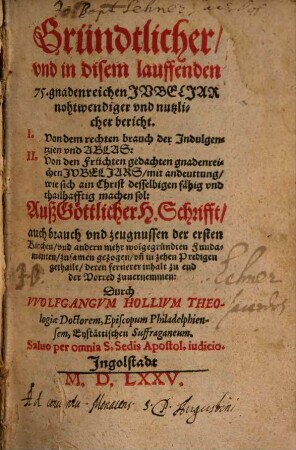 Gründtlicher/
vnd in disem lauffenden
75. gnadenreichen IVBELJAR
nohtwendiger vnd nutzli-
cher bericht.
I. Von dem rechten brauch der Indulgen-
tzien vnd ABLAS:
II. Von den Früchten gedachten gnadenrei-
chen IVBELJARS/ mit andeuttung/
wie sich ain Christ desselbigen fähig vnd
thailhafftig machen sol:
Auß Göttlicher H. Schrifft/
auch brauch vnd zeugnussen der ersten
Kirchen/ vnd andern mehr wolgegründten Funda-
menten/ zusamen gezogen/ vñ in zehen Predigen
gethailt/ deren fernerer inhalt zu end
der Vorred zuuernemmen:
Durch
VVOLFGANGVM HOLLIVM THEO-
logiæ Doctorem, Episcopum Philadelphien-
sem, Eystättischen Suffraganeum.
Saluo per omnia S. Sedis Apostol. iudicio.
Ingolstadt
M. D. LXXV.
Ad conuentū Monacens. S. P. Augustini